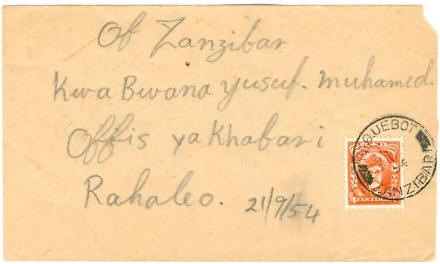 Of Zanzibar
Kwa Bwana Yusuf. Muhamed.
Offis ya Khabari
Rahaleo. 21/9/54
PAQUEBOT
ZANZIBAR
ZANZIBAR